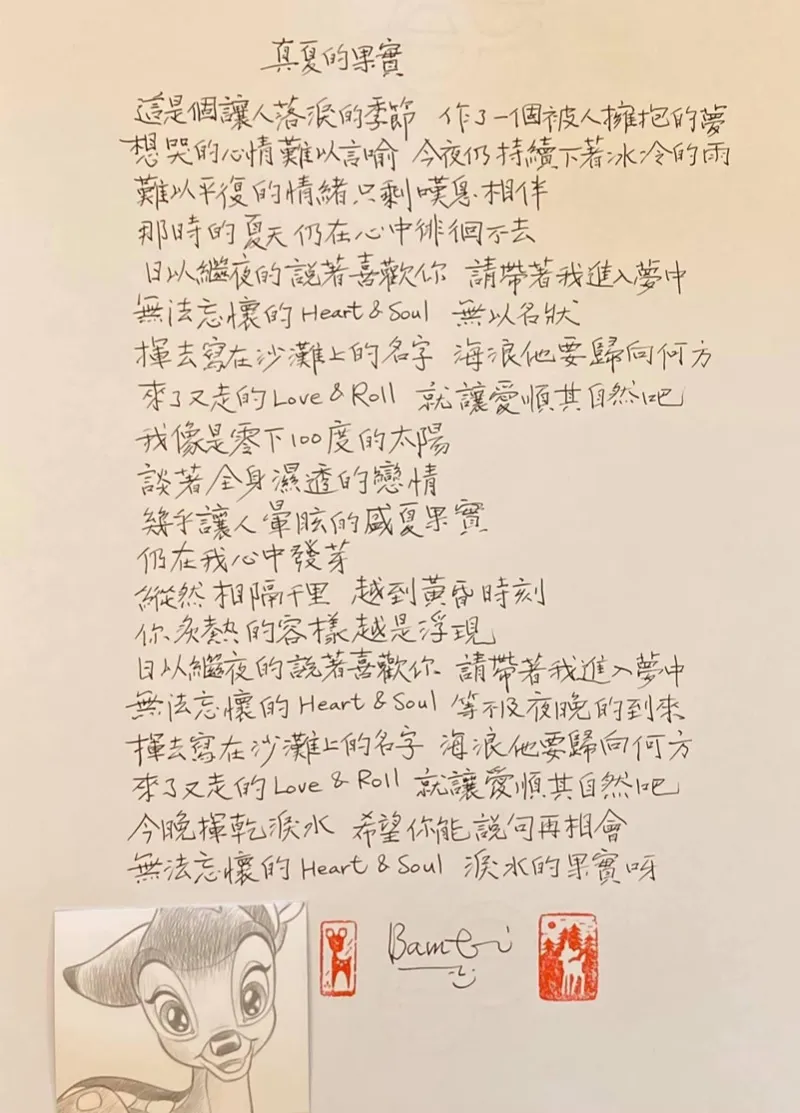 真夏的果實
這是個讓人落淚的季節 作了一個被人擁抱的夢
想哭的心情難以言喻 今夜仍持續下著冰冷的雨
難以平復的情緒只剩嘆息相伴
那時的夏天仍在心中徘徊不去
日以繼夜的說著喜歡你 請帶著我進入夢中
無法忘懷的 Heart & Soul 無以名狀
揮去寫在沙灘上的名字 海浪他要歸向何方
來了又走的 Love & Roll 就讓愛順其自然吧
我像是零下100度的太陽
談著全身濕透的戀情
幾乎讓人暈眩的盛夏果實
仍在我心中發芽
縱然相隔千里 越到黃昏時刻
你炙熱的容樣越是浮現
日以繼夜的說著喜歡你 請帶著我進入夢中
無法忘懷的 Heart & Soul 等不及夜晚的到來
揮去寫在沙灘上的名字 海浪他要歸向何方
來了又走的 Love & Roll 就讓愛順其自然吧
今晚揮乾淚水 希望你能說句再相會
無法忘懷的 Heart & Soul 淚水的果實呀
Bambi